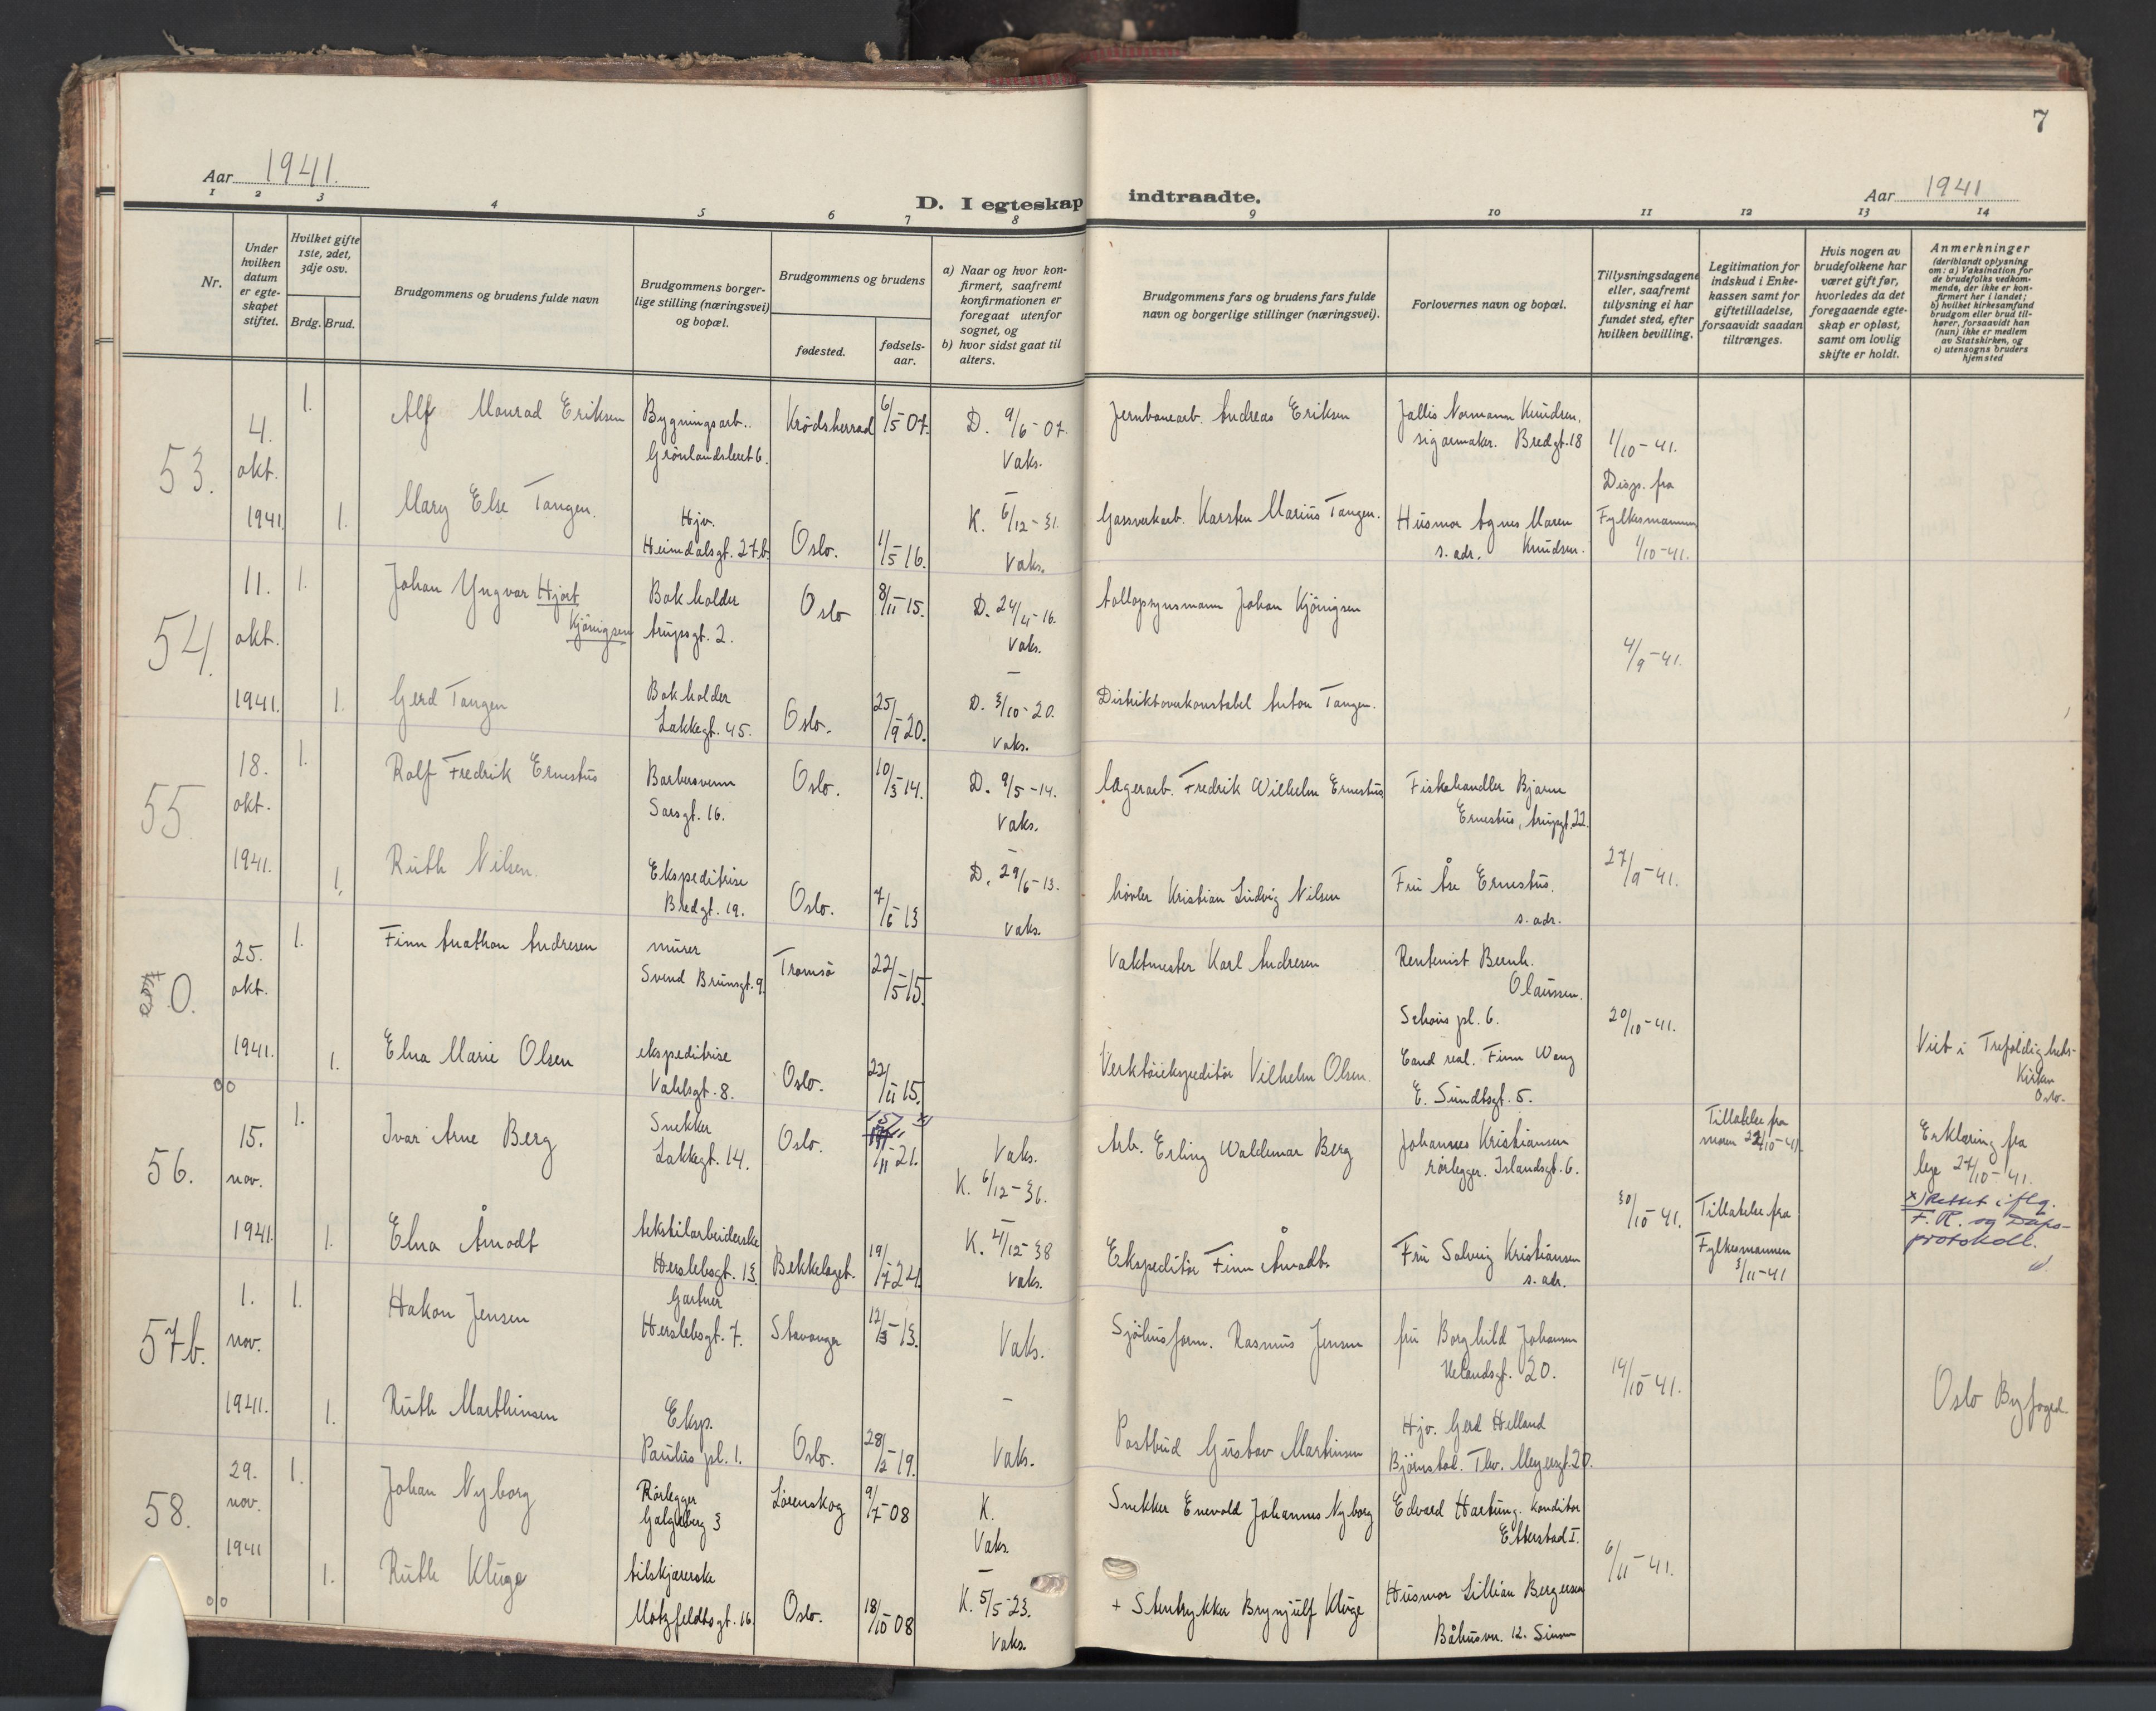 7
Aar 1941.
D. I egteskap indtraadte.
Aar 1941
1 2 3 4 5 6 7 8 9 10 11 12 13 14
Nr.
Under hvilken datum er egteskapet stiftet.
Hvilket gifte 1ste, 2det, 3dje osv.
Brdg. Brud.
Brudgommens og brudens fulde navn
Brudgommens borgerlige stilling (næringsvei) og bopæl.
Brudgommens og brudens
fødested.
fødselsaar.
a) Naar og hvor konfirmert, saafremt konfirmationen er foregaat utenfor sognet, og
b) hvor sidst gaat til alters.
Brudgommens fars og brudens fars fulde navn og borgerlige stillinger (næringsvei).
Forlovernes navn og bopæl.
Tillysningsdagene eller, saafremt tillysning ei har fundet sted, efter hvilken bevilling.
Legitimation for indskud i Enkekassen samt for giftetilladelse, forsaavidt saadan tiltrænges.
Hvis nogen av brudefolkene har været gift før, hvorledes da det foregaaende egteskap er opløst, samt om lovlig skifte er holdt.
Anmerkninger
(deriblandt oplysning om: a) Vaksination for de brudefolks vedkommende, der ikke er konfirmert her i landet;
b) hvilket kirkesamfund brudgom eller brud tilhører, forsaavidt han (hun) ikke er medlem av Statskirken, og
c) utensogns bruders hjemsted
53.
4. okt. 1941
1.
Alf Monrad Eriksen
Bygningsarb.
Grönlandsleret 6.
Krødsherrad
6/5-07.
D. 9/6-07.
Vaks.
Jernbanearb. Andreas Eriksen
Jallis Normann Knudsen,
sigarmaker. Bredgt. 18
1/10-41.
Disp. fra
Fylkesmannen
1/10-41.
1.
Mary Else Tangen.
Hjv.
Heimdalsgt. 27b.
Oslo.
1/5 16.
K. 6/12-31.
Vaks.
Gassverkarb. Karsten Marius Tangen.
Husmor Agnes Maren
s. adr. Knudsen.
54.
11. okt. 1941.
1.
Johan Yngvar Hjort
Kjönigsen
Bokholder
Arupsgt. 2.
Oslo
8/11-15.
D. 24/4-16.
Vaks.
Tollopsynsmann Johan Kjönigsen
4/9-41.
1.
Gerd Tangen
Bokholder
Lakkegt. 45.
Oslo.
25/9 20.
D. 3/10-20.
Vaks.
Distriktoverkonstabel Anton Tangen.
55
18. okt. 1941.
1.
Rolf Fredrik Ernestus
Barbersvenn
Sarsgt. 16.
Oslo.
10/3 14.
D. 9/5-14.
Vaks.
Lagerarb. Fredrik Wilhelm Ernestus
Fiskehandler Bjarne
Ernestus, Arupsgt. 22.
27/9-41.
1.
Ruth Nilsen.
Ekspeditrise
Bredgt. 19.
Oslo.
7/5 13
D. 29/6-13.
Vaks.
høvler Kristian Ludvig Nilsen
Fru Åse Ernestus.
s. adr.
0.
25. okt. 1941.
1.
Finn Anathon Andresen
murer
Svend Brunsgt. 9.
Tromsö
22/5-15.
Vaktmester Karl Andresen
Rentenist Bernh.
Olaussen.
Schous pl. 6.
20/10-41.
1.
Elna Marie Olsen
ekspeditrise
Vahlsgt. 8.
Oslo.
22/11 15.
Verktöiekspeditör Vilhelm Olsen.
Cand real. Finn Wang
E. Sundtsgt. 5.
Viet i Trefoldighets-
Kirken
Oslo.
56.
15. nov. 1941
1.
Ivar Arne Berg
Snekker
Lakkegt. 14.
Oslo.
15/11-21.
Vaks.
K. 6/12-36.
Arb. Erling Waldemar Berg
Johannes Kristiansen
rörlegger. Islandsgt. 6.
30/10-41.
Tillatelse fra
moren 22/10-41.
Erklæring fra
lege 27/10-41.
x) Rettet iflg.
F. R. og Dåps-
protokoll.
1.
Elna Åmodt
tekstilarbeiderske
Herslebsgt. 13.
Bekkelaget.
19/7 24.
K. 4/12-38
Vaks.
Ekspeditör Finn Åmodt.
Fru Solveig Kristiansen
s. adr.
Tillatelse fra
Fylkesmannen
3/11-41
57b.
1. nov. 1941.
1.
Hakon Jensen
Gartner
Herslebsgt. 7.
Stavanger
12/3-13.
Vaks.
Sjöhusform. Rasmus Jensen
fru Borghild Johansen
Uelandsgt. 20.
14/10-41.
1.
Ruth Marthinsen
Eksp.
Paulus pl. 1.
Oslo.
28/2-19.
Vaks.
Postbud Gustav Marthinsen
Hjv. Gerd Helland
Bjørnstad. Thv. Meyersgt. 20.
Oslo Byfoged.
58.
29. nov. 1941
1.
Johan Nyborg
Rørlegger
Galgeberg 3
Lörenskog
9/7-08
K.
Vaks.
Snekker Enevold Johannes Nyborg
Edvard Hartung. Konditor
Etterstad I.
6/11-41.
1.
Ruth Kluge
tilskjærerske
Motzfeldtsgt. 16.
Oslo.
18/10 08
K. 5/5-23.
Vaks.
+ Stentrykker Brynjulf Kluge
Husmor Lillian Bergersen
Båhusvn. 12. Sinsen